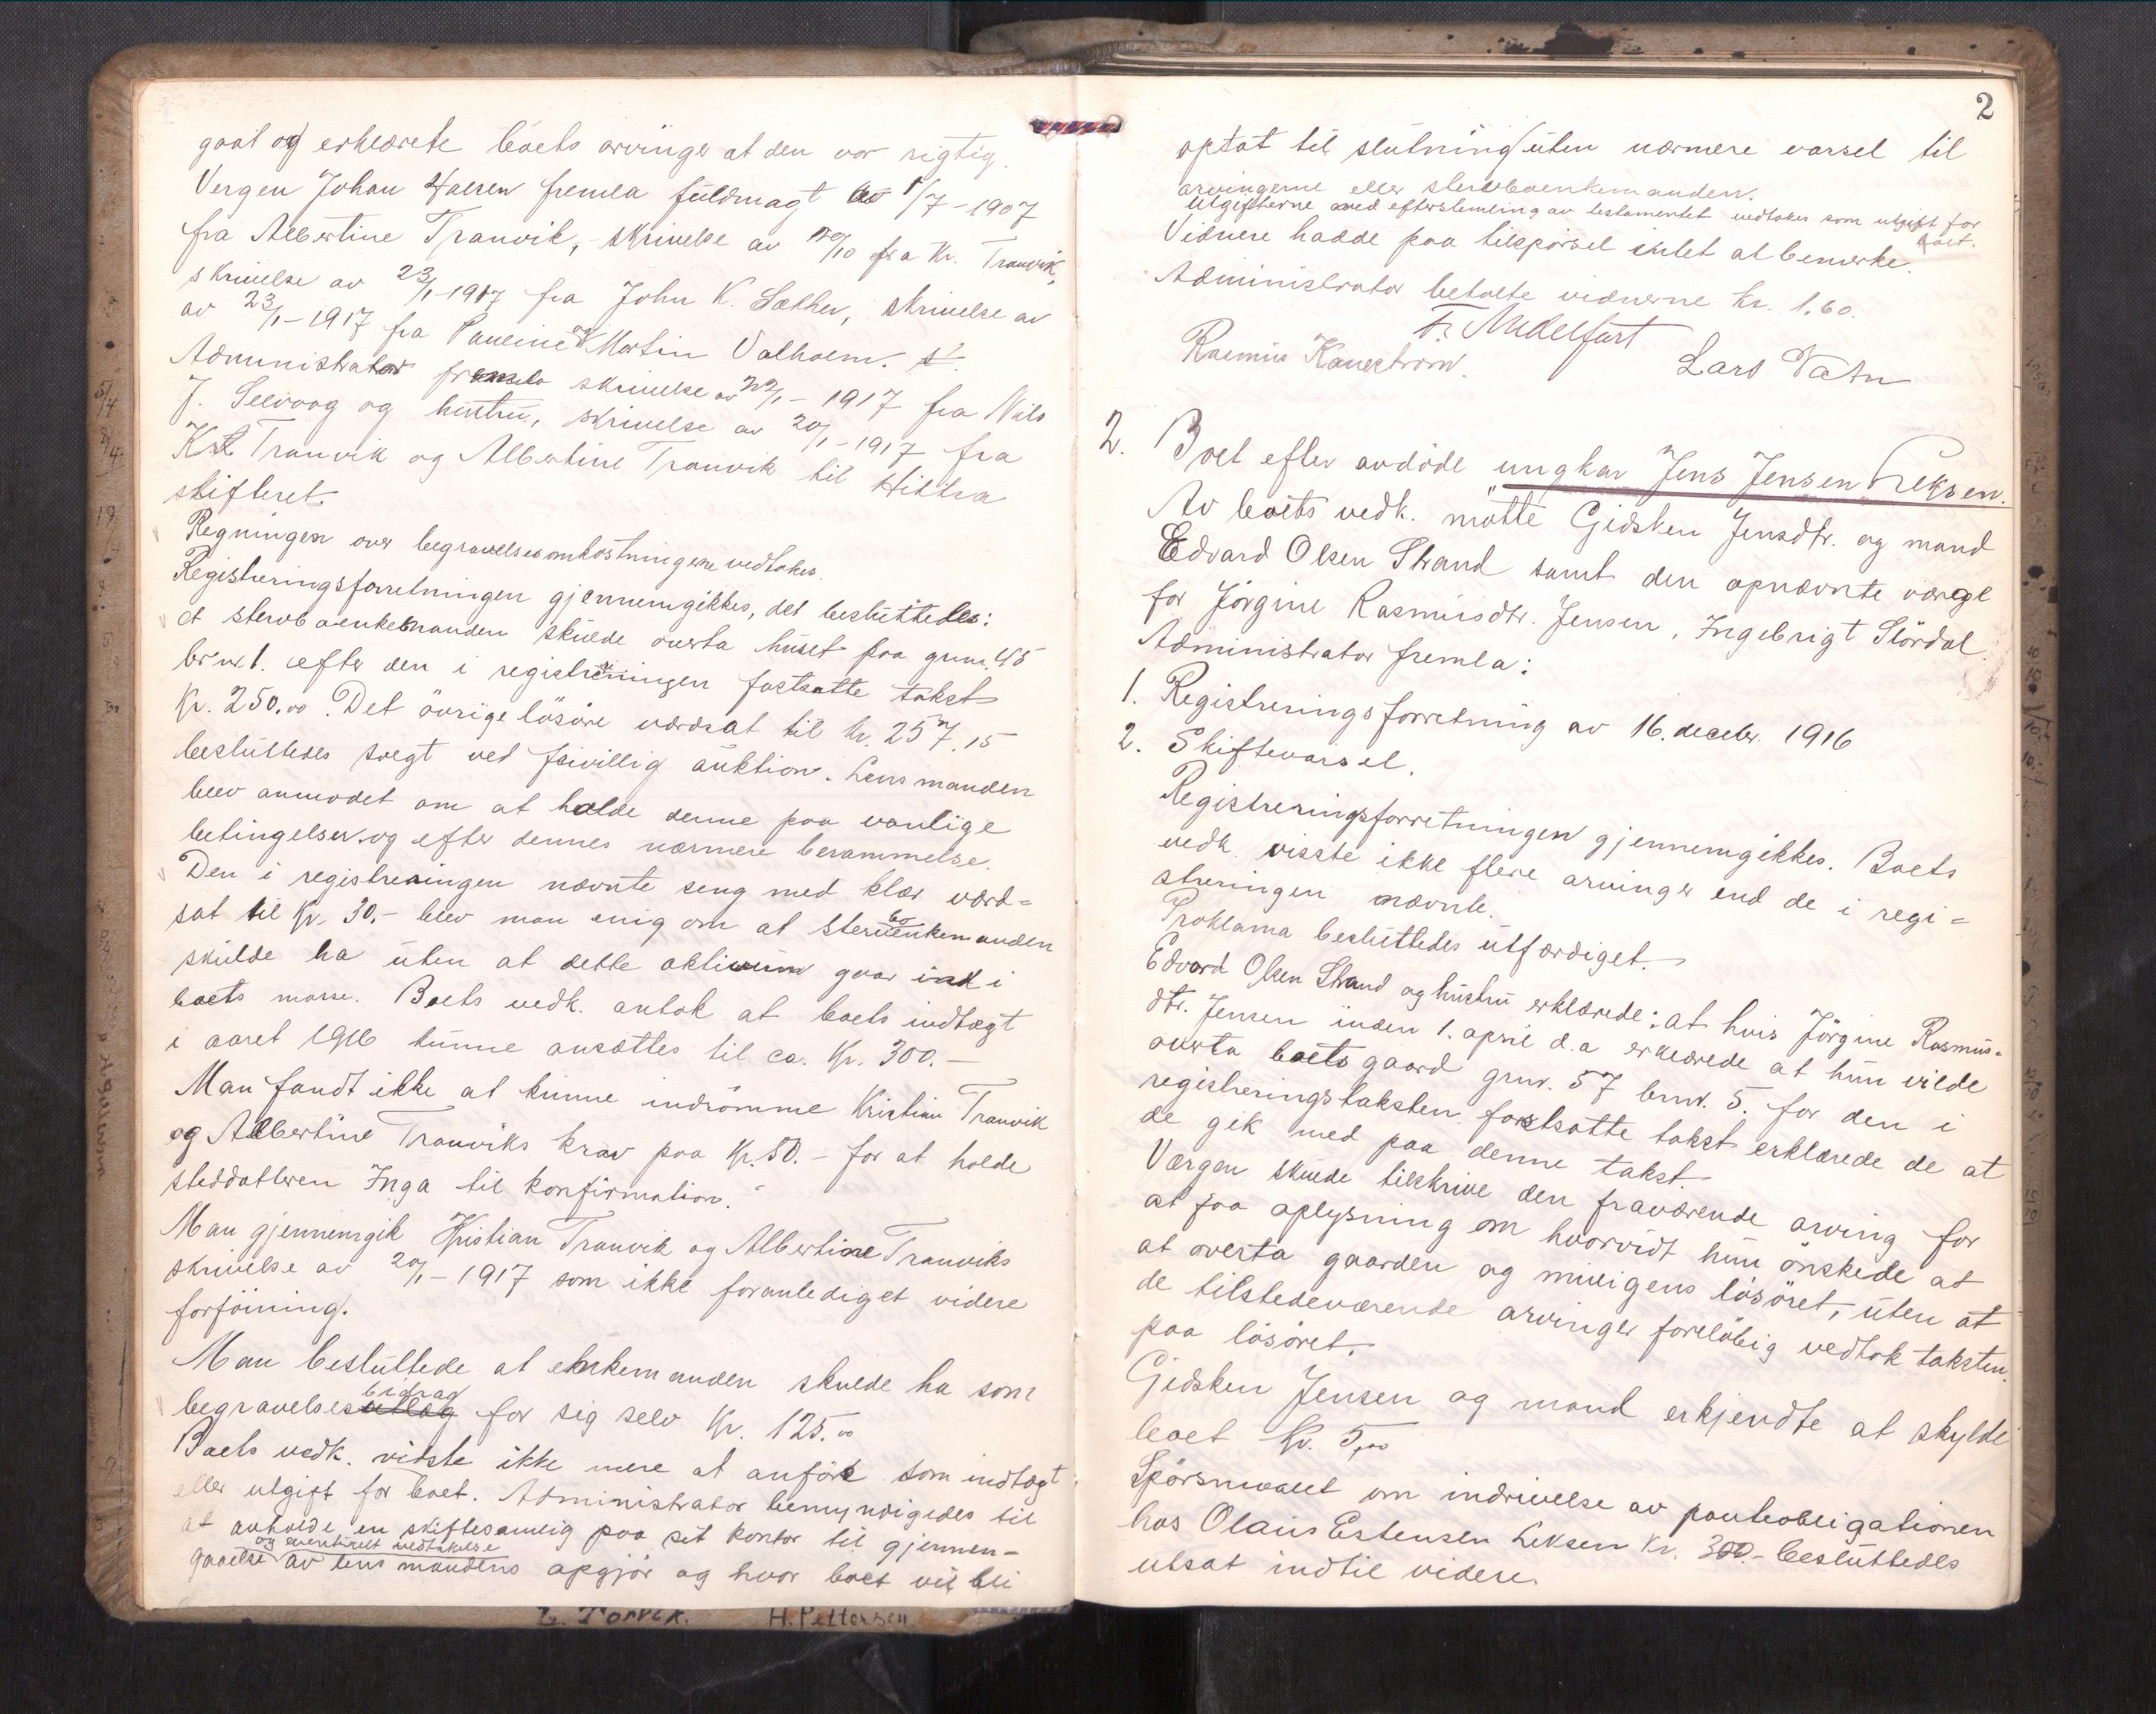 gaat og erklærete boets arvinger at den var rigtig.
Vergen Johan Halsen fremla fuldmagt av 1/7-1907
fra Albertine Tranvik, skrivelse av 20/10 fra Kr. Tranvik,
skrivelse av 23/1-1917 fra John K. Sæther, skrivelse av
av 23/1-1917 fra Pauline og Martin Valholm.
Administrator fremla skrivelse av 22/1-1917 fra Nils
J. Selvaag og hustru, skrivelse av 20/1-1917 fra
Kr. Tranvik og Albertine Tranvik til Hittra
skifteret.
Regningen over begravelsesomkostningene vedtokes.
Registreringsforretningen gjennemgikkes, det besluttedes:
at stervboenkemanden skulde overta huset paa grnr. 45
brnr 1. efter den i registreringen fastsatte takst
Kr. 250.00. Det øvrige løsøre værdsat til kr. 257.15
besluttedes solgt ved frivillig auktion. Lensmanden
blev anmodet om at holde denne paa vanlige
betingelser og efter dennes nærmere berammelse.
Den i registreringen nævnte seng med klær værd=
sat til Kr. 30.- blev man enig om at stervboenkemanden
skulde ha uten at dette aktivum gaar ind i
boets masse. Boets vedk. antok at boets indtægt
i aaret 1916 kunne ansættes til ca. Kr. 300.-
Man fandt ikke at kunne indrømme Kristian Tranvik
og Albertine Tranviks krav paa Kr. 50.- for at holde
steddatteren Inga til konfirmation.
Man gjennemgik Kristian Tranvik og Albertine Tranviks
skrivelse av 20/1-1917 som ikke foranlediget videre
forføining.
Man besluttede at enkemanden skulde ha som
bidrag
begravelsesutlæg for sig selv Kr. 125.00
Boets vedk. vidste ikke mere at anføre som indtægt
eller utgift for boet. Administrator bemyndigedes til
at avholde en skiftesamlig paa sit kontor til gjennem-
og eventuelt vedtakelse
gaaelse av lensmandens opgjør og hvor boet vil bli
2
optat til slutning uten nærmere varsel til
arvingerne eller stervboenkemanden.
Utgifterne med efterstemling av testamentet vedtokes som utgift for
boet.
Vidnere hadde paa tilspørsel intet at bemerke.
Administrator betalte vidnerne kr. 1.60.
Fr. Middelfart
Rasmus Kanestrøm. Lars Vatn
2. Boet efter avdøde ungkar Jens Jensen Leksen.
Av boets vedk. møtte Gidsken Jensdtr. og mand
Edvard Olsen Strand samt den opnævnte værge
for Jørgine Rasmusdtr. Jensen, Ingebrigt Størdal.
Administrator fremla:
1. Registreringsforretning av 16. decebr. 1916
2. Skiftevarsel.
Registreringsforretningen gjennemgikkes. Boets
vedk. visste ikke flere arvinger end de i regi=
streringen nævnte.
Proklama besluttedes utfærdiget.
Edvard Olsen Strand og hustru erklærede: at hvis Jørgine Rasmus=
dtr. Jensen inden 1. april d.a erklærede at hun vilde
overta boets gaard grnr. 57 brnr. 5. for den i
registreringstaksten fastsatte takst erklærede de at
de gik med paa denne takst.
Værgen skulde tilskrive den fraværende arving for
at faa oplysning om hvorvidt hun ønskede at
at overta gaarden og muligens løsøret, uten at
de tilstedeværende arvinger foreløbig vedtok taksten
paa løsøret.
Gidsken Jensen og mand erkjendte at skylde
boet Kr. 5,00
Spørsmaalet om indrivelse av panteobligationen
hos Olaus Estensen Leksen Kr. 300.- besluttedes
utsat indtil videre.
H. Pettersen